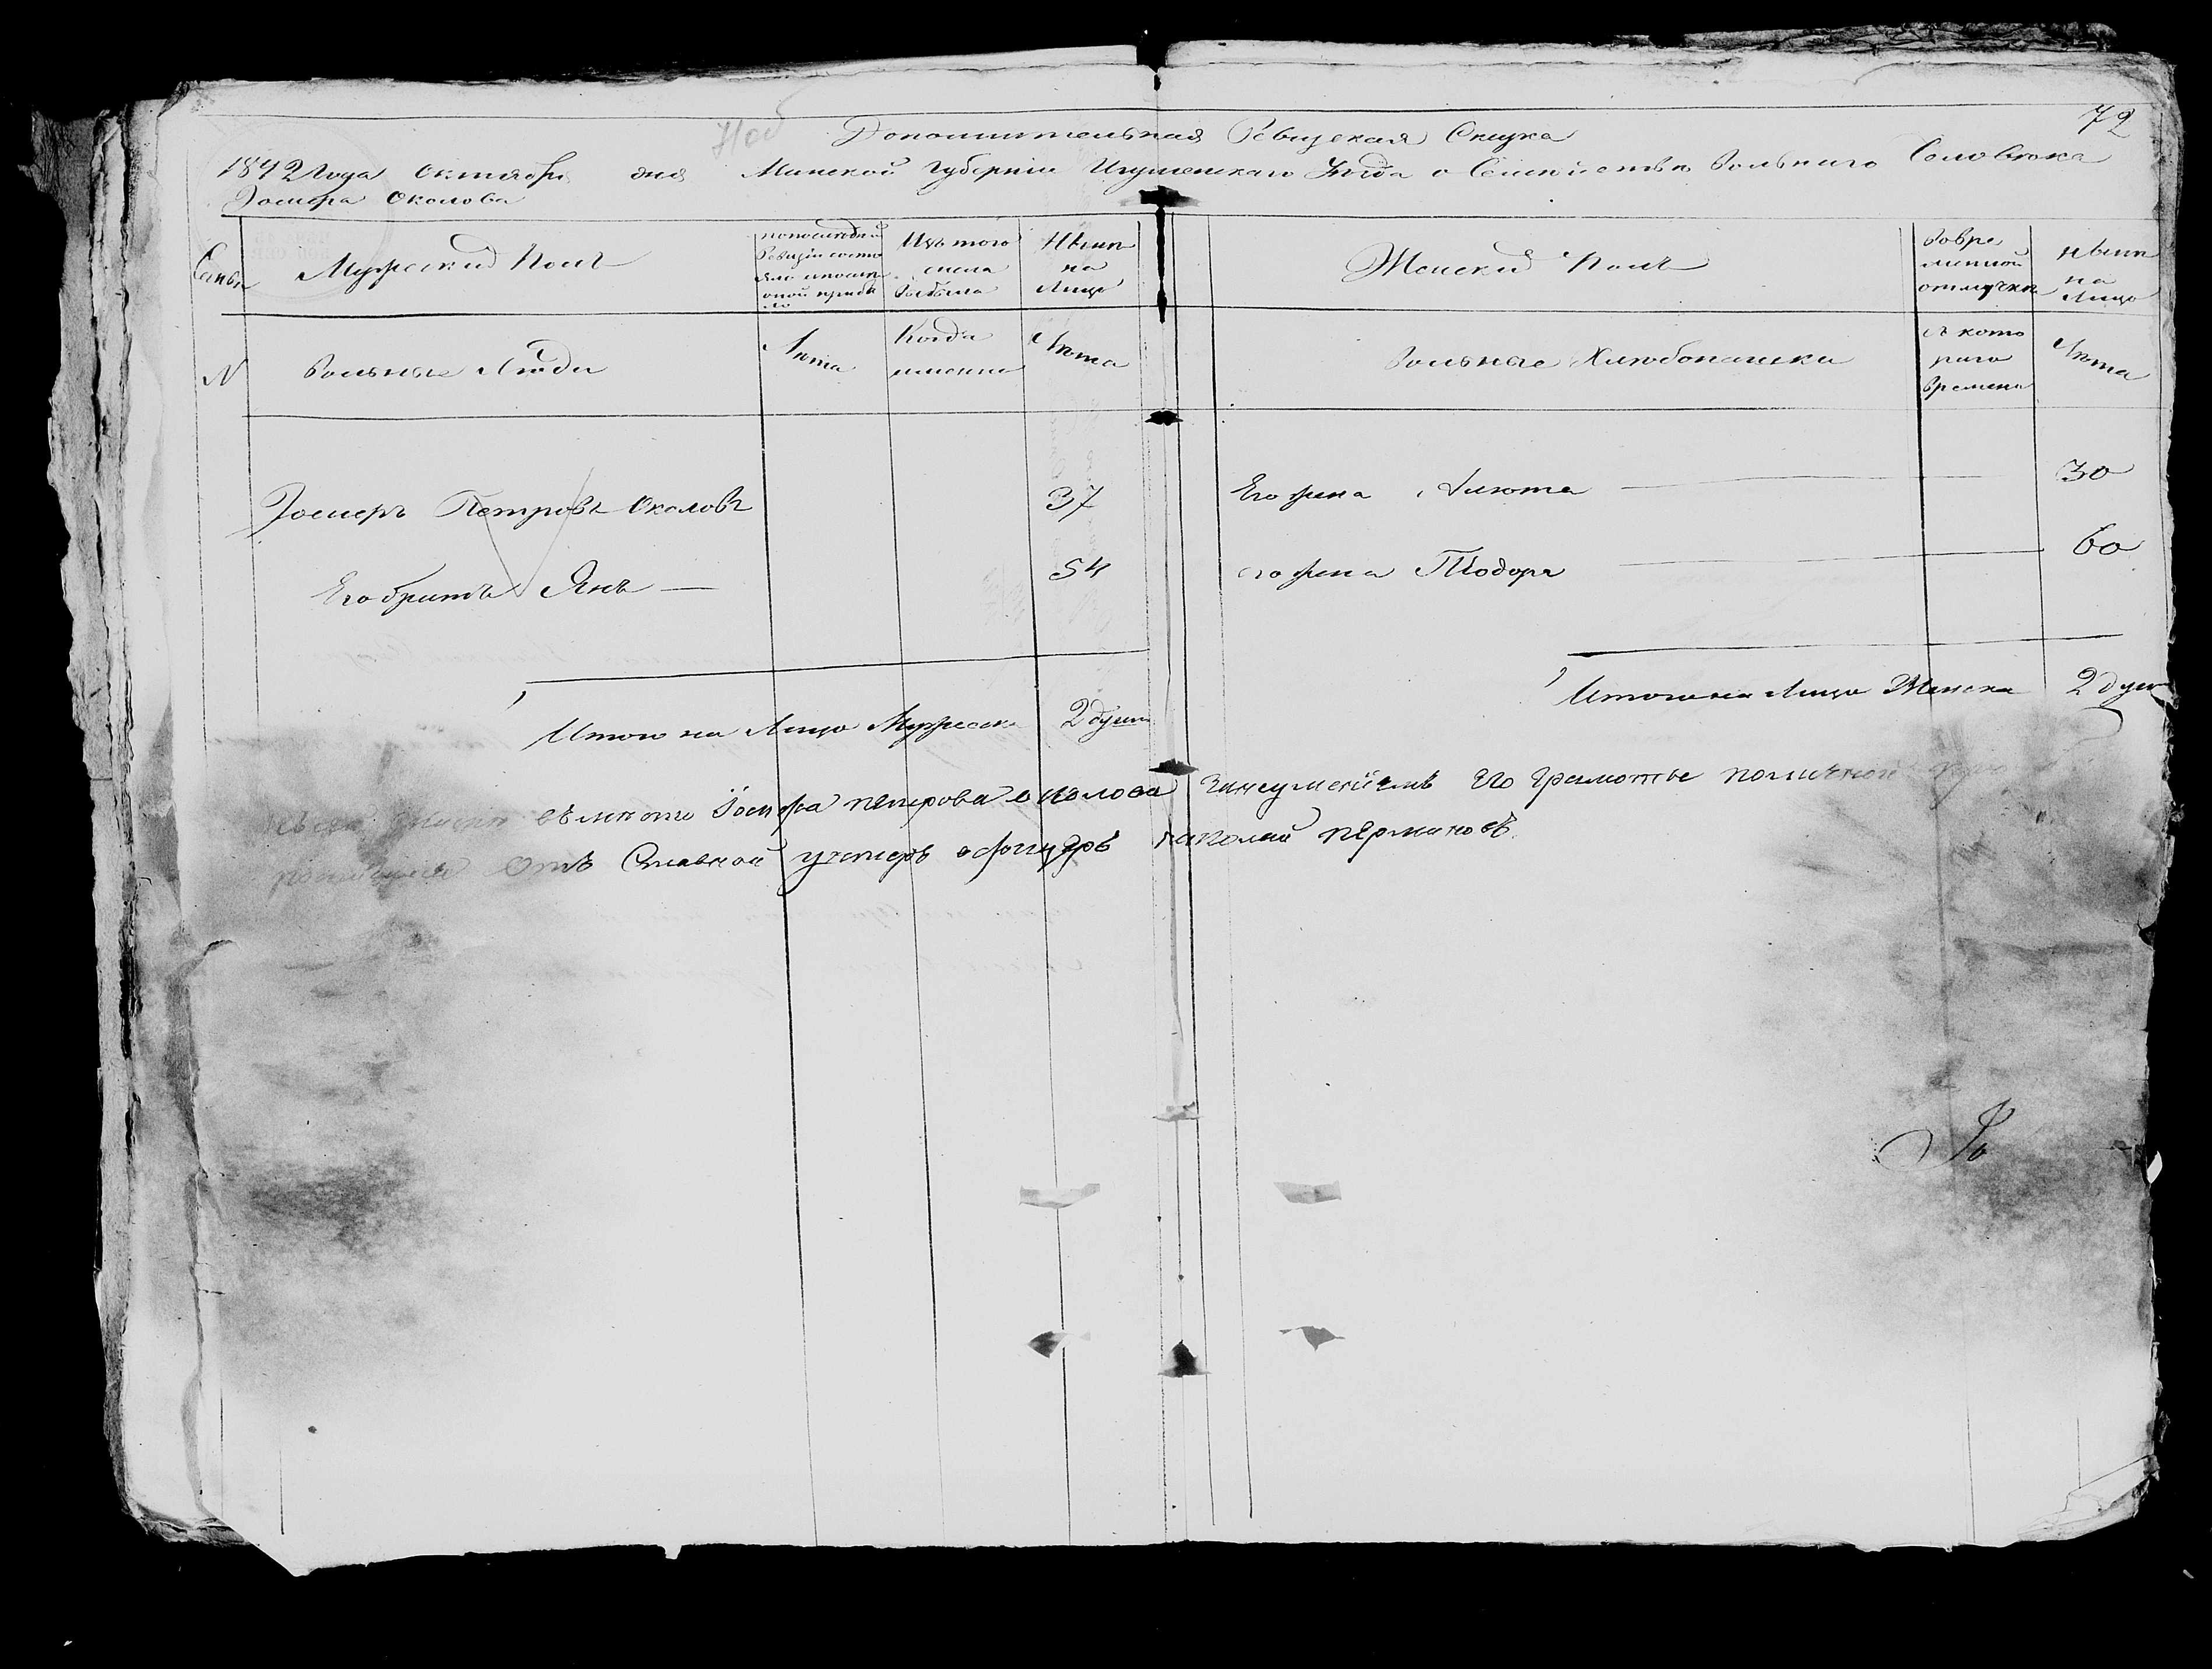 72
Дополнительная Ревизская Сказка
1842 года октября дня Минской Губерніи Игуменскаго Уѣзда о Семействѣ Вольнаго Человѣка
Іосифа Околова
Мужескій Полъ
по последней Ревизіи состояло и после оной прибыло
Изъ того числа выбыло
Нынѣ на Лицо
Женскій Полъ
Во временной отлучке
Нынѣ на Лицо
N
Вольные Люди
Лѣта
Когда именно
Лѣта
Вольные Хлѣбопашки
Съ котораго времени
Лѣта
Іосифъ Петровъ Околовъ 37
Его жена Анюта 30
Его братъ Янъ — 54
его жена Тѣодора 60
Итого на Лицо Мужеска 2 души
Итого на Лицо Женска 2 души
Іосифа петрова околова Его Грамотѣ
Отъ Ставной унтеръ офицеръ